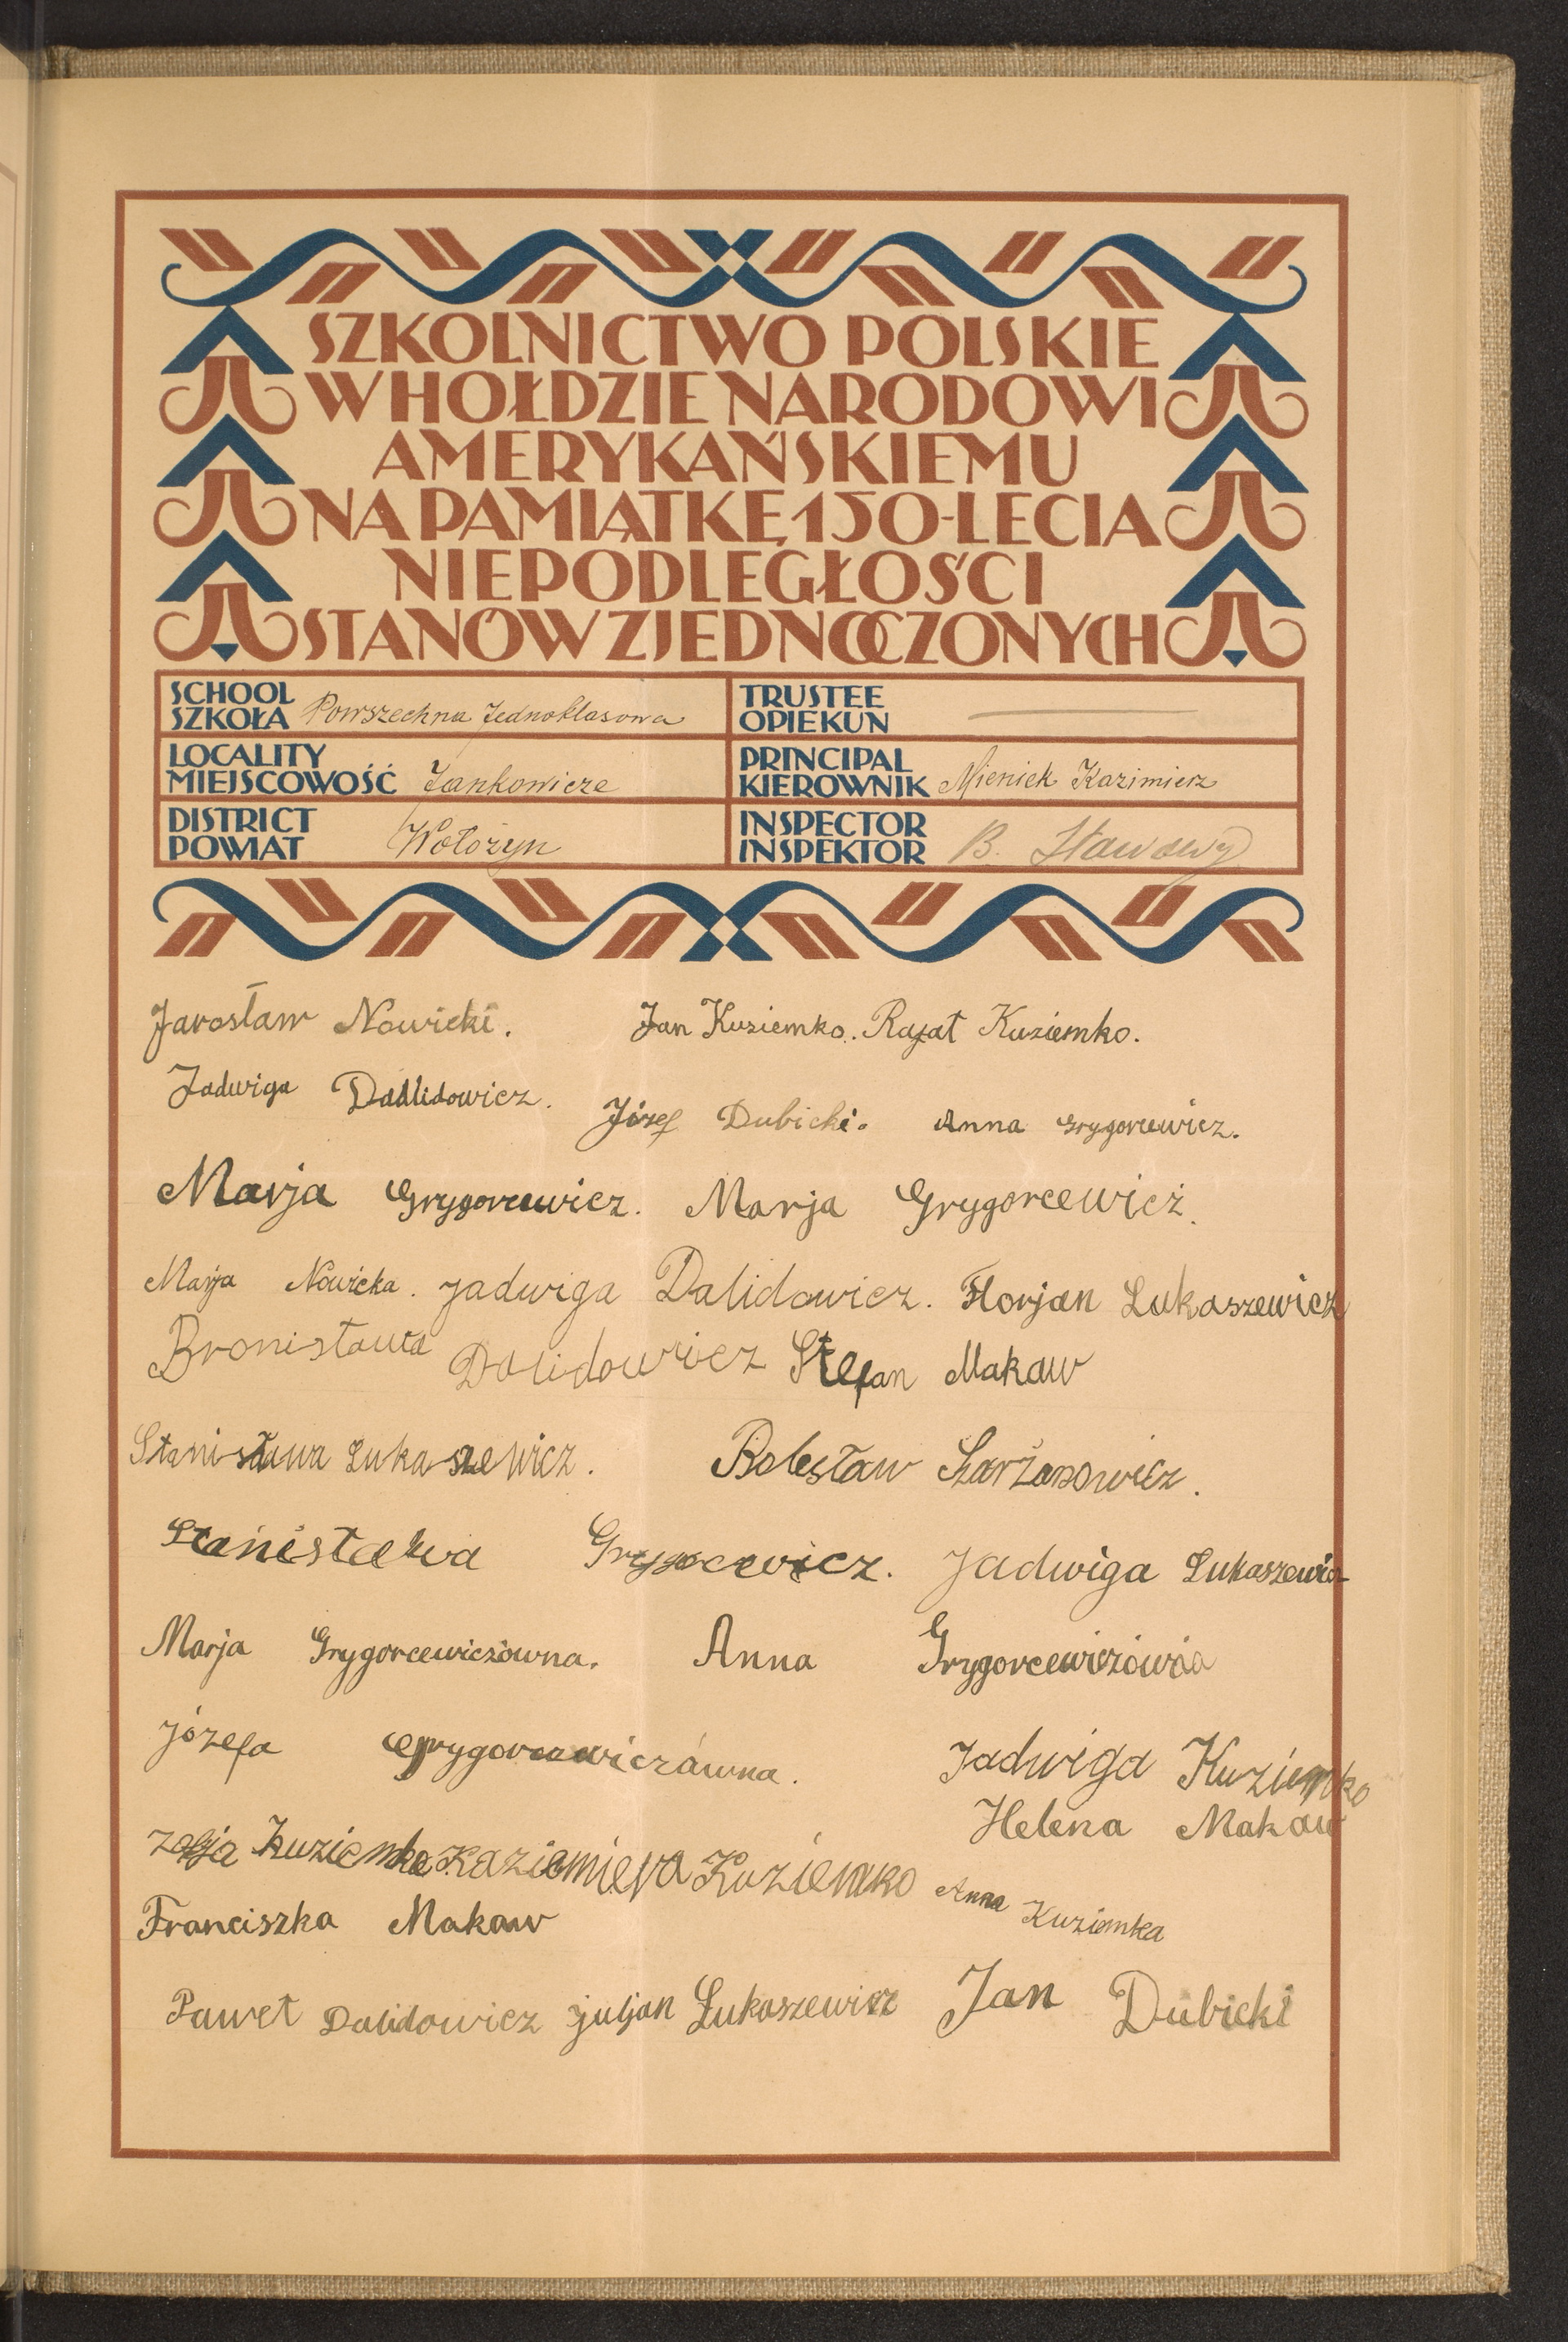 SZKOLNICTWO POLSKIE
W HOŁDZIE NARODOWI
AMERYKAŃSKIEMU
NA PAMIĄTKĘ 150-LECIA
NIEPODLEGŁOŚCI
STANÓW ZJEDNOCZONYCH
SCHOOL
SZKOŁA Powszechna Jednoklasowa
TRUSTEE
OPIEKUN
LOCALITY
MIEJSCOWOŚĆ Jankowicze
PRINCIPAL
KIEROWNIK Mieniek Kazimierz
DISTRICT
POWIAT Wołożyn
INSPECTOR
INSPEKTOR B. Stawowy
Jarosław Nowicki. Jan Kuziemko. Rafał Kuziemko.
Jadwiga Dallidowicz. Józef Dubicki. Anna Grygorcewicz.
Marja Grygorcewicz. Marja Grygorcewicz.
Marja Nowicka. Jadwiga Dalidowicz. Florjan Łukaszewicz
Bronisława Dalidowicz Stefan Makaw
Stanisława Łukaszewicz. Bolesław Szarżanowicz.
Stanisława Grygorcewicz. Jadwiga Łukaszewicz
Marja Grygorcewiczówna. Anna Grygorcewiczówna
Józefa Grygorcewiczówna. Jadwiga Kuziemko
Helena Makaw
Zofja Kuziemko Kaziemiera Kuziemko Anna Kuziemka
Franciszka Makaw
Paweł Dalidowicz Juljan Łukaszewicz Jan Dubicki